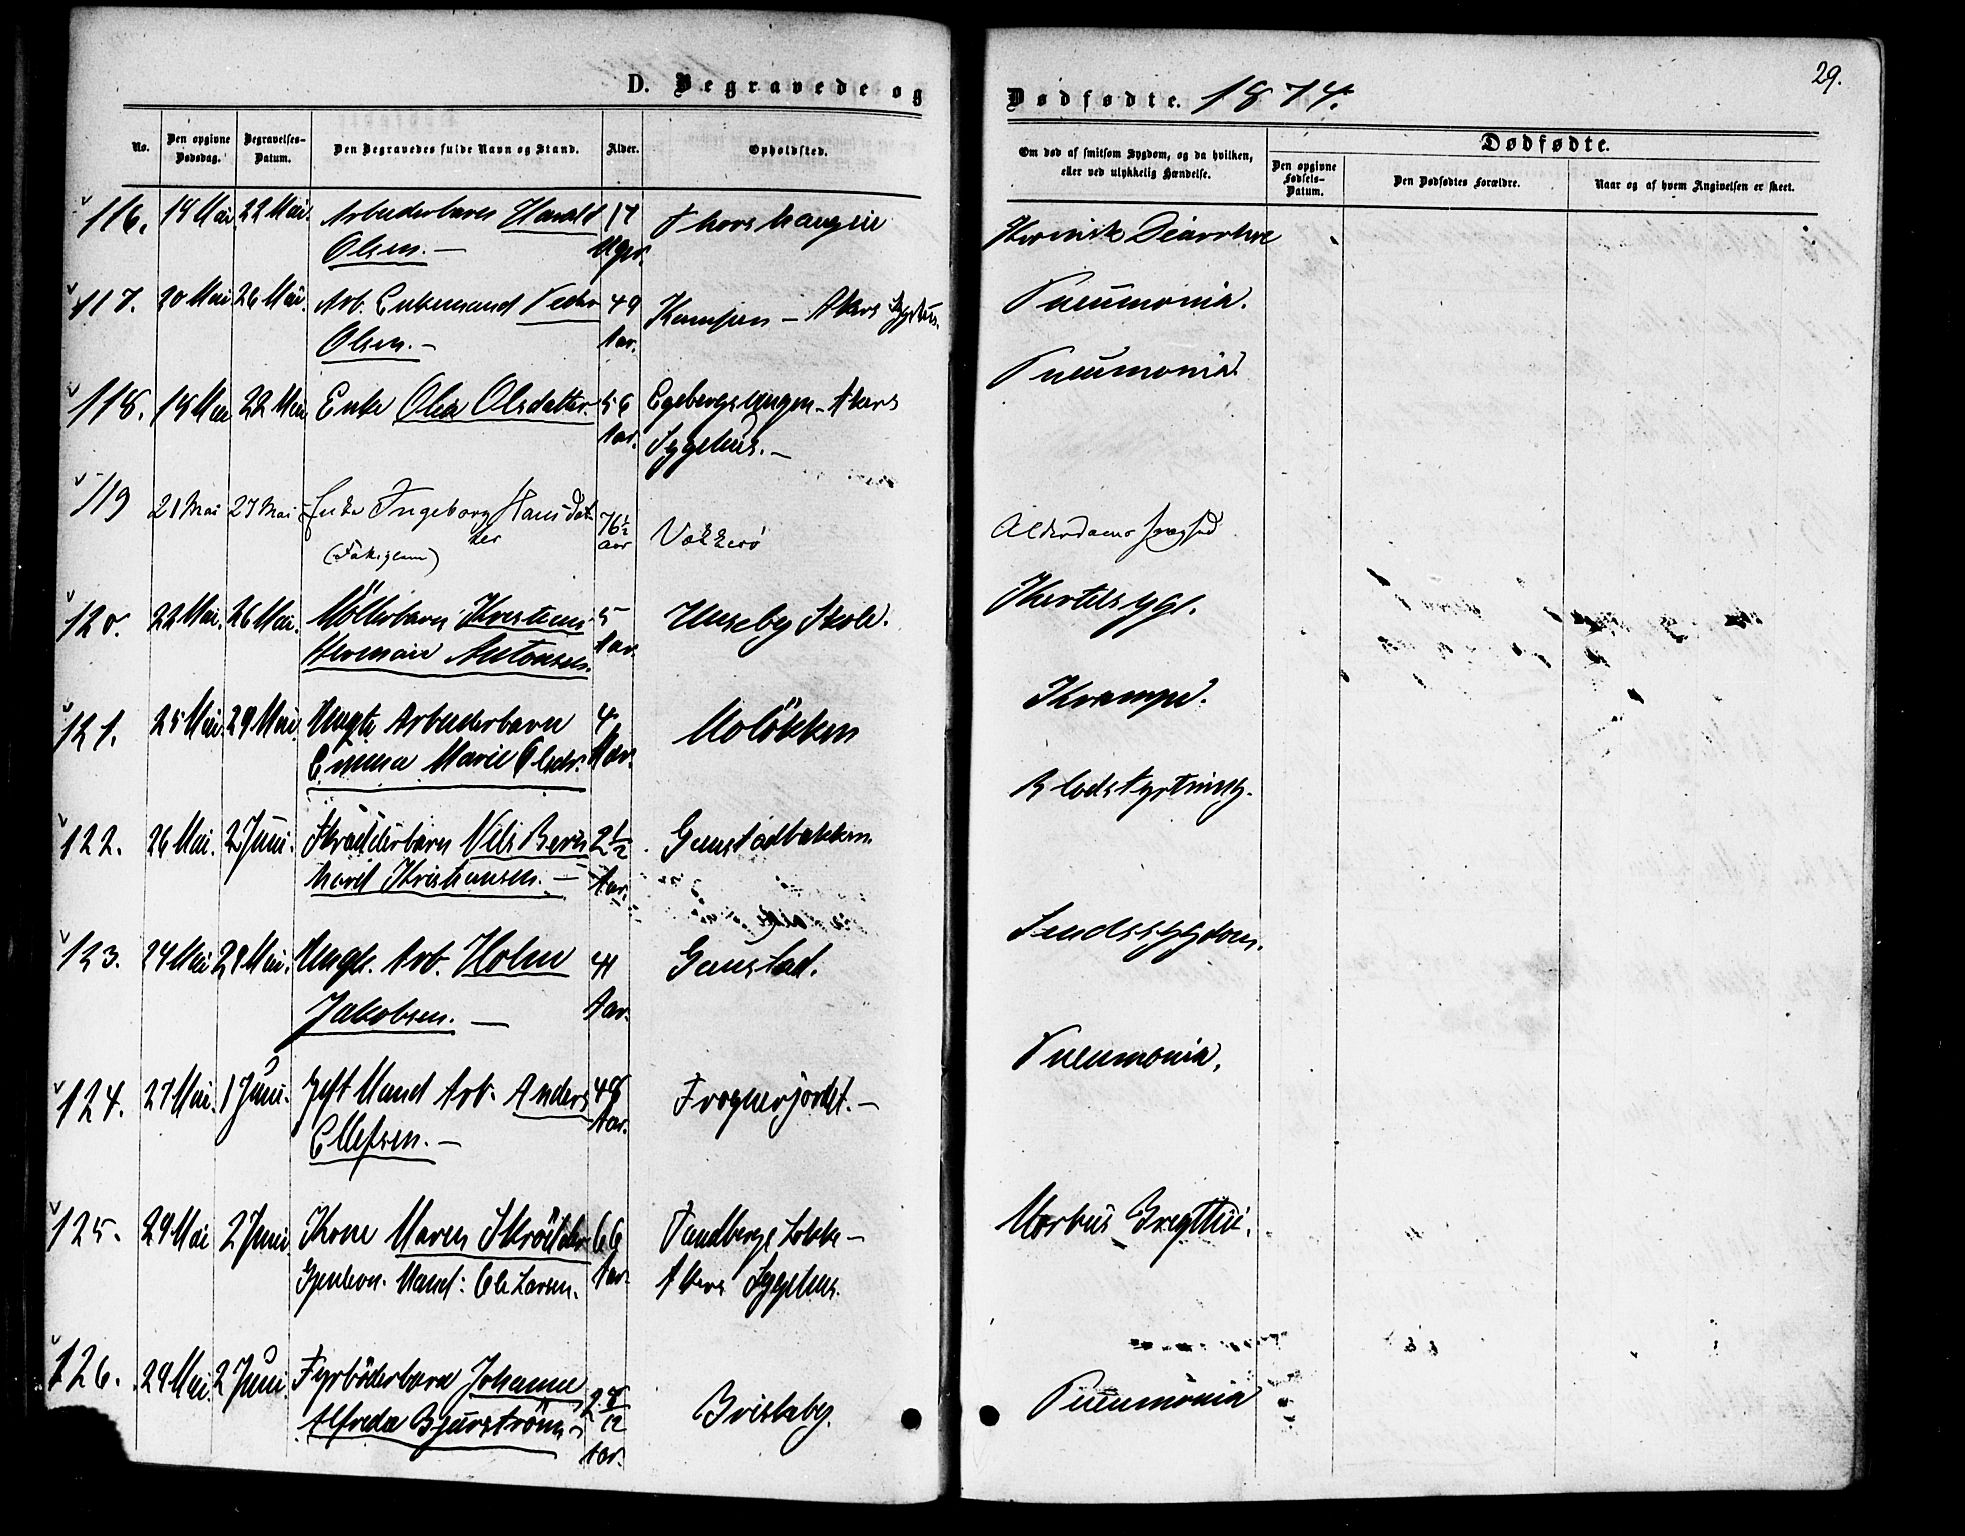 D. Begravede og
Dødfødte. 1874.
29.
No.
Den opgivne Dødsdag.
Begravelses-Datum.
Den Begravedes fulde Navn og Stand.
Alder.
Opholdsted.
Om død af smitsom Sygdom, og da hvilken,
eller ved ulykkelig Hændelse.
Dødfødte.
Den opgivne Fødsels-Datum.
Den Dødfødtes Forældre.
Naar og af hvem Angivelsen er skeet.
116. 19 Mai 22 Mai. Arbeiderbarn Harald 17 Thorshaugen Kronisk Diarrhoe
Olsen. — Uger.
117. 20 Mai 26 Mai. Arb. Enkemand Peder 49 Kampen — Akers Sygehus. Pneumonia.
Olsen. — Aar.
118. 18 Mai 22 Mai Enke Olea Olsdatter. 56 Egebergs — Akers Pneumonia.
Aar. Sygehus. —
119 21 Mai 27 Mai Enke Ingeborg Hansdat- 76½ Vækkerö Alderdomssvaghed
ter aar
120. 22 Mai. 26 Mai. Möllerbarn 5 Huseby Skole. Kertelsyge.
Herman Antonsen. Aar.
121. 25 Mai. 29 Mai. Arbeiderbarn 4 Molökken Krampe.
Emma Marie Olsdr. Aar.
122. 26 Mai. 2 Juni. Skrædderbarn Nils Bern 2½ Gaustadbakken. Blodstyrtning.
hard Kristiansen. — Aar.
123. 24 Mai 29 Mai. Ungk. Arb. Holm 41 Gaustad. Sindssygdom.
Jakobsen. — Aar.
124. 27 Mai. 1 Juni. Gift Mand Arb. Anders 48 Frognerjordet. — Pneumonia.
Ellefsen. — Aar.
125. 29 Mai 2 Juni Kone Maren 66 Sandbergs Lökke — Morbus Brigthii.
Mand: Ole Larsen. Aar. Akers Sygehus.
126. 29 Mai. 2 Juni Fyrböderbarn Johanne 2 8/12 Briskeby. Pneumonia
Alfreda Bjurström — Aar.